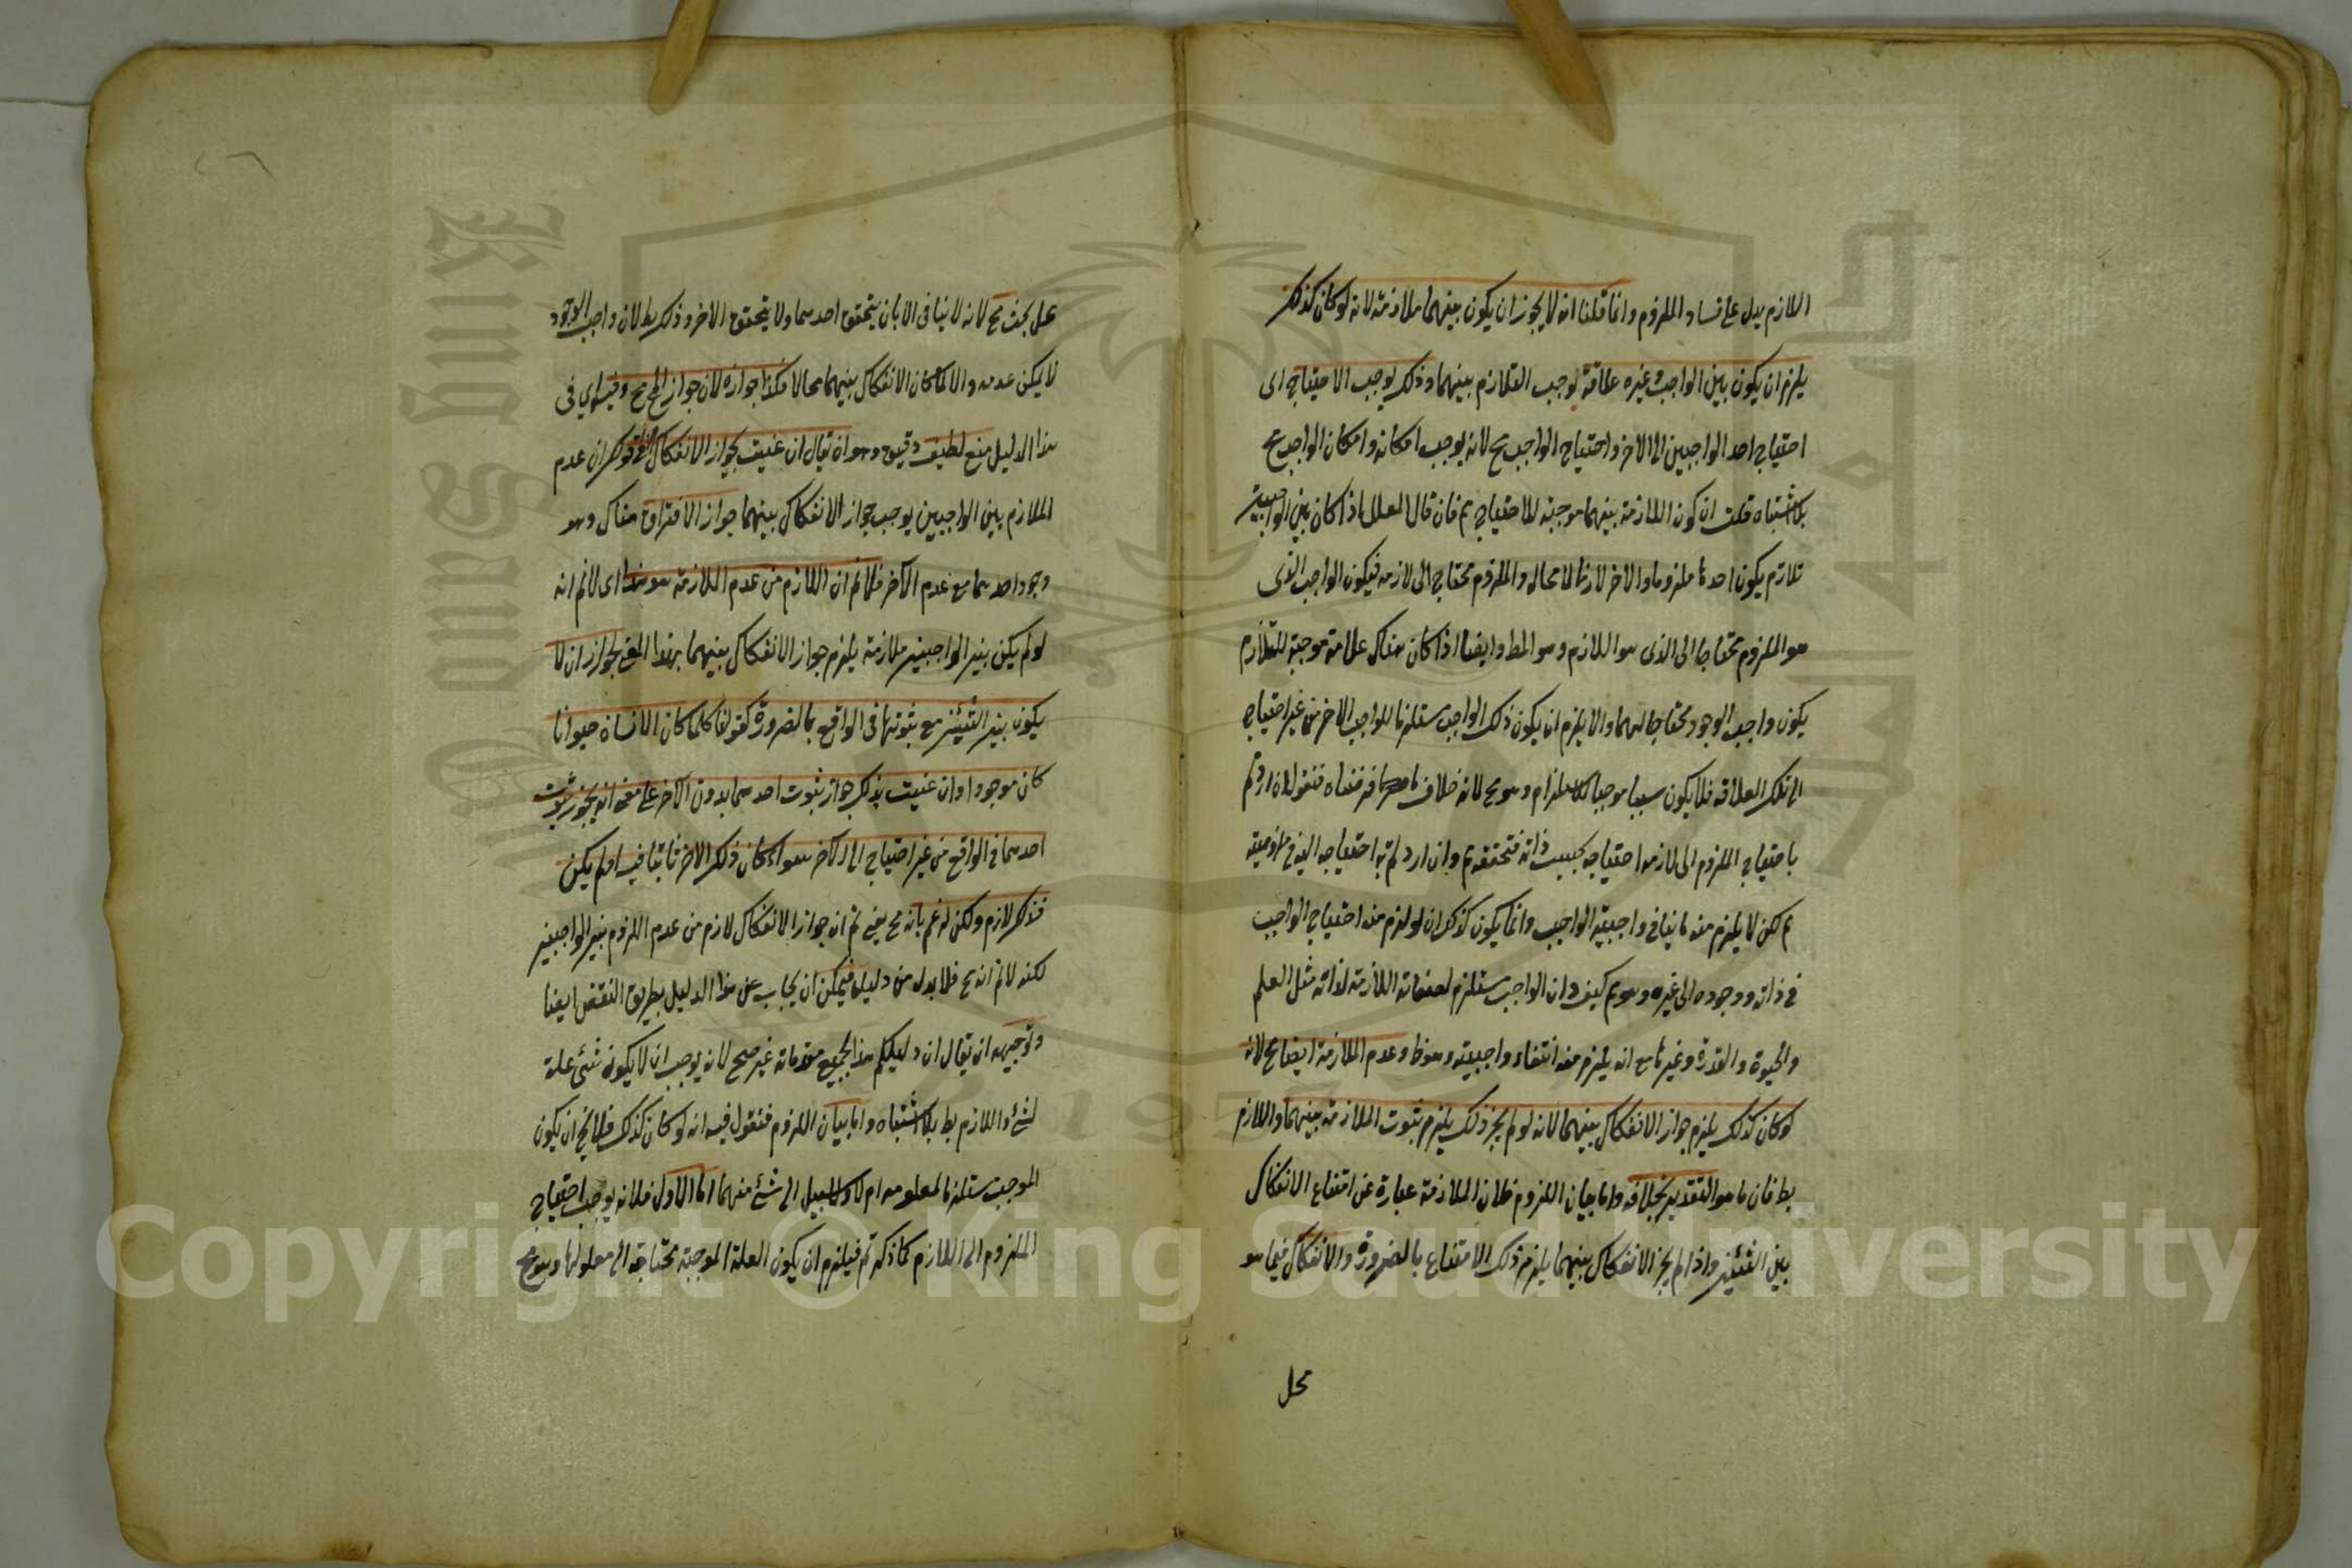 اللازم يدل على فساد الملزوم وانما قلنا انه لا يجوز ان يكون بينهما ملازمة لانه لو كان كذلك
يلزم ان يكون بين الواجب وغيره علاقة توجب التلازم بينهما وذلك يوجب الاحتياج اى
احتياج احد الواجبين الى الاخر واحتياج الواجب مح لانه يوجب امكانه وامكان الواجب مح
بلا اشتباه قلت ان كون الملازمة بينهما موجبة للاحتياج مم فان قال المعلل اذا كان بين الواجبين
تلازم يكون احدهما ملزوما والاخر لازما لا محالة والملزوم محتاج الى لازمه فيكون الواجب الذى
هو الملزوم محتاجا الى الذى هو اللازم وهو المط وايضا اذا كان هناك علامة موجبة للتلازم
يكون واجب الوجود محتاجا اليها والا يلزم ان يكون ذلك الواجب مستلزما للواجب الاخر من غير احتياج
الى تلك العلاقة فلا يكون سببا موجبا للاستلزام وهو مح لانه خلاف ما فرضناه فنقول ان اردتم
باحتياج الملزوم الى لازمه احتياجه بحسب ذاته فتحققه مم وان اردتم به احتياجه اليه فى ملزوميته
مم لكن لا يلزم منه ما ينافى واجبية الواجب وانما يكون كذلك ان لو لزم منه احتياج الواجب
فى ذاته ووجوده الى غيره وهو مم كيف وان الواجب مستلزم لصفاته اللازمة لذاته مثل العلم
والحيوة والقدرة وغيرها مع انه يلزم منه انتفاء واجبيته وهو ظ وعدم الملازمة ايضا مح لانه
لو كان كذلك يلزم جواز الانفكاك بينهما لانه لو لم يجز ذلك يلزم ثبوت الملازمة بينهما واللازم
بط فان ما هو التقدير بخلافه واما بيان اللزوم فلان الملازمة عبارة عن امتناع الانفكاك
بين الشيئين واذا لم يجز الانفكاك بينهما يلزم ذلك الامتناع بالضرورة والانفكاك فيما هو
محل
محل بحث مح لانه لا ينافى الا بان يتحقق احدهما ولا يتحقق الاخر وذلك بط لان واجب الوجود
لا يمكن عدمه والا لما كان الانفكاك بينهما محالا فكذا جوازه لان جواز المح مح وفيه اى فى
هذا الدليل منع لطيف دقيق وهو ان يقال ان عنيت بجواز الانفكاك فى قولك ان عدم
الملازم بين الواجبين يوجب جواز الانفكاك بينهما جواز الافتراق هناك وهو
وجود احدهما مع عدم الآخر فلا نم ان اللازم من عدم الملازمة هو هذا اى لا نم انه
لو لم يكن بين الواجبين ملازمة يلزم جواز الانفكاك بينهما بهذا المعنى لجواز ان لا
يكون بين الشيئين مع ثبوتها فى الواقع بالضرورة كقولنا كلما كان الانسان حيوانا
كان موجودا وان عنيت بذلك جواز ثبوت احدهما بدون الاخر على معنى انه يجوز ثبوت
احدهما فى الواقع من غير احتياج الى الاخر سواء كان ذلك الاخر ثابتا فيه او لم يكن
فذلك لازم ولكن لا نم بانه مح يعنى ثم ان جواز الانفكاك لازم من عدم اللزوم بين الواجبين
لكنه لا نم انه مح فلا بد له من دليل فيمكن ان يجاب عن هذا الدليل بطريق النقض ايضا
وتوجيهه ان يقال ان دليلكم هذا بجميع مقدماته غير صحيح لانه يوجب ان لا يكون شئ علة
لشئ واللازم بط بلا اشتباه واما بيان اللزوم فنقول فيه انه لو كان كذلك فلا يخ ان يكون
الموجب مستلزما لمعلوله ام لا ولا سبيل الى شئ منهما اما الاول فلانه يوجب احتياج
الملزوم الى اللازم كما ذكرتم فيلزم ان يكون العلة الموجبة محتاجة الى معلولها وهو مح
Copyright © King Saud University